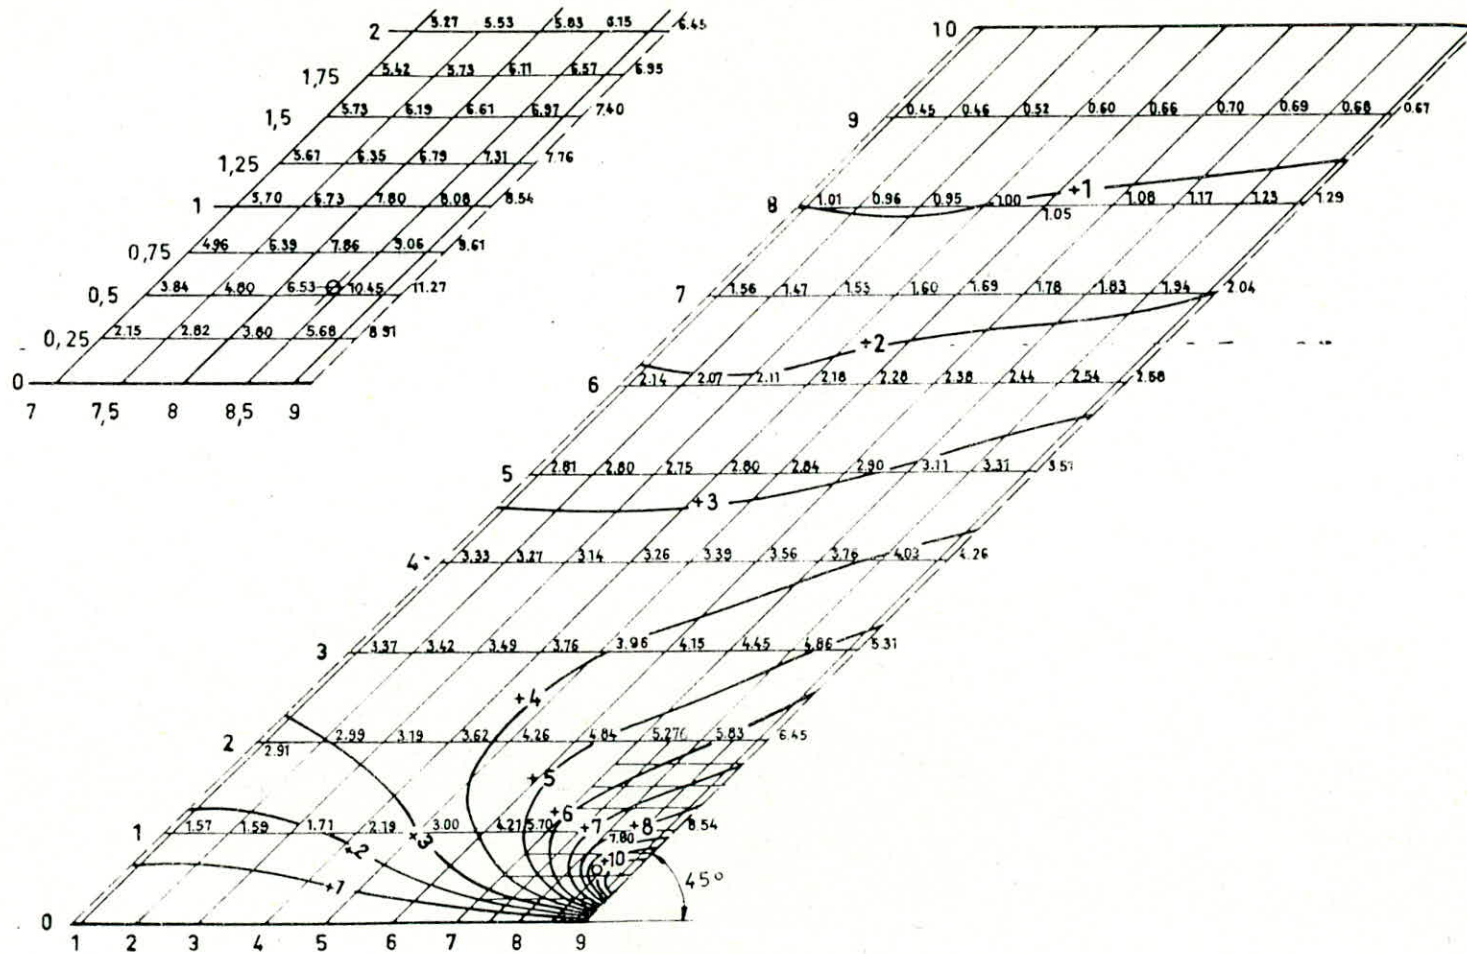 2 5.27 5.53 5.83 6.15 6.45
1,75 5.42 5.73 6.11 6.57 6.95
1,5 5.73 6.19 6.61 6.97 7.40
1,25 5.67 6.35 6.79 7.31 7.76
1 5.70 6.73 7.80 8.08 8.54
0,75 4.96 6.39 7.86 9.06 9.61
0,5 3.84 4.80 6.53 10.45 11.27
0,25 2.15 2.82 3.80 5.68 8.91
0
7 7,5 8 8,5 9
10
9 0.45 0.46 0.52 0.60 0.66 0.70 0.69 0.68 0.67
+1
8 1.01 0.96 0.95 1.00 1.05 1.08 1.17 1.23 1.29
7 1.56 1.47 1.53 1.60 1.69 1.78 1.83 1.94 2.04
+2
6 2.14 2.07 2.11 2.18 2.28 2.38 2.44 2.54 2.68
5 2.81 2.80 2.75 2.80 2.84 2.90 3.11 3.31 3.51
+3
4 3.33 3.27 3.14 3.26 3.39 3.56 3.76 4.03 4.26
3 3.37 3.42 3.49 3.76 3.96 4.15 4.45 4.86 5.31
+4
2 2.91 2.99 3.19 3.62 4.26 4.84 5.27 5.83 6.45
+5
+6
1 1.57 1.59 1.71 2.19 3.00 4.21 5.70 +7 +8 8.54
+2 +3 7.80
+10
+1 45°
0
1 2 3 4 5 6 7 8 9